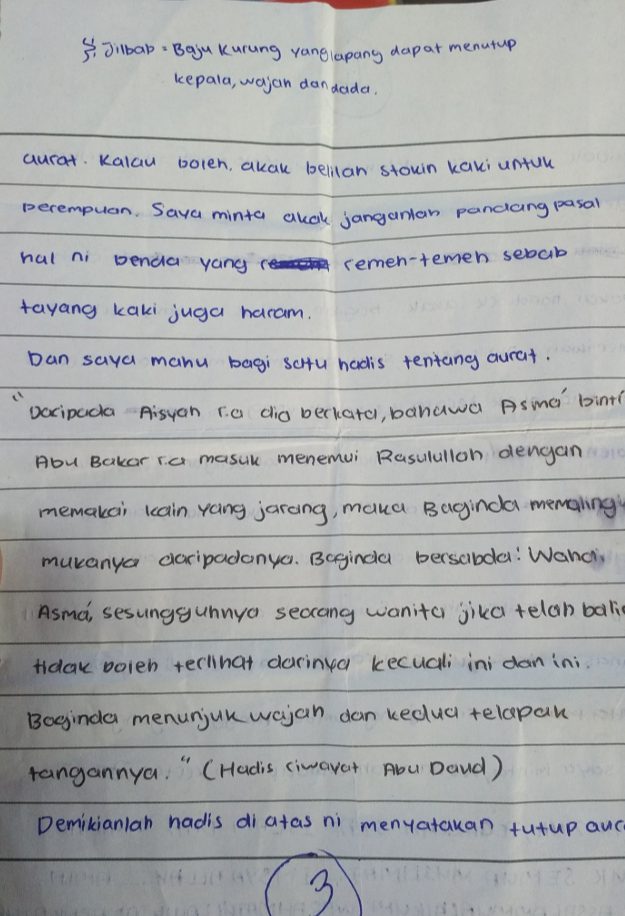 Jilbab = Baju kurung yang lapang dapat menutup
kepala, wajah dan dada.
aurat. Kalau boleh, akak belilah stokin kaki untuk
perempuan. Saya minta akak janganlah pandang pasal
hal ni benda yang remeh-temeh sebab
tayang kaki juga haram.
Dan saya mahu bagi satu hadis tentang aurat.
"Daripada Aisyah r.a dia berkata, bahawa Asma' binti
Abu Bakar r.a masuk menemui Rasulullah dengan
memakai kain yang jarang, maka Baginda memaling
mukanya daripadanya. Baginda bersabda: Wahai
Asma', sesungguhnya seorang wanita jika telah bali
tidak boleh terlihat darinya kecuali ini dan ini.
Baginda menunjuk wajah dan kedua telapak
tangannya." (Hadis riwayat Abu Daud)
Demikianlah hadis di atas ni menyatakan tutup aur
3